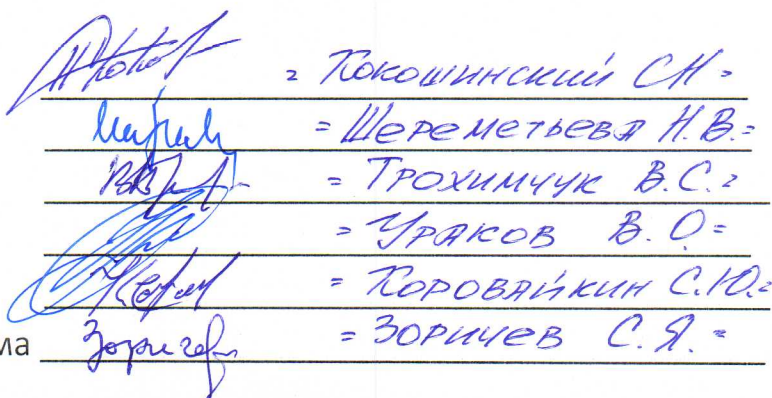 = Кокошинский С.Н. =
= Шереметьева Н.В. =
= Трохимчук В.С. =
= Ураков В.О. =
= Коровайкин С.Ю. =
ма Зоричев = Зоричев С.Я. =